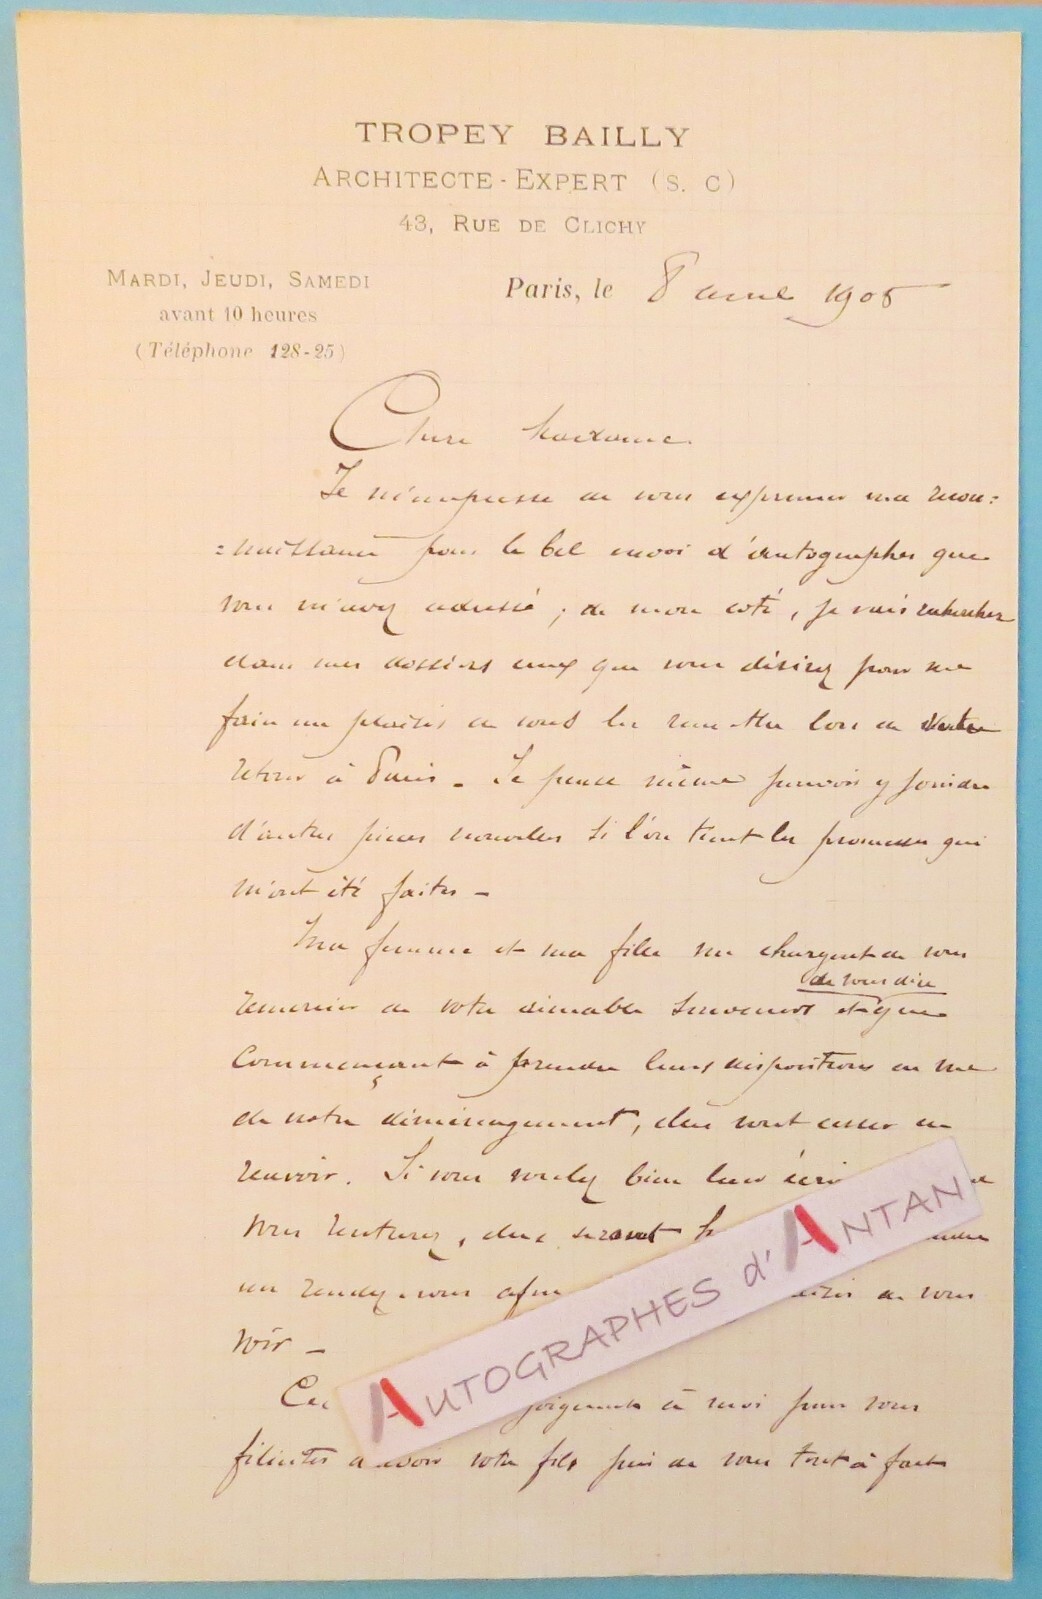 TROPEY BAILLY
ARCHITECTE-EXPERT (S. C)
43, RUE DE CLICHY
MARDI, JEUDI, SAMEDI
avant 10 heures
(Téléphone 128-25)
Paris, le 8 avril 1905
Chère Madame
Je m'empresse de vous exprimer ma recon=
=naissance pour le bel envoi d'autographes que
vous m'avez adressé ; de mon coté, je vais rechercher
dans mes dossiers ceux que vous désirez pour me
faire un plaisir de vous les remettre lors de votre
retour à Paris - Je pense même pouvoir y joindre
d'autres pièces nouvelles si l'on tient les promesses qui
m'ont été faites -
Ma femme et ma fille me chargent de vous
remercier de votre aimable souvenir et de vous dire que
commençant à prendre leurs dispositions en vue
de notre déménagement, elles vont cesser de
recevoir. Si vous voulez bien leur
vous rentrerez, elles seront
un rendez-vous afin de vous
voir -
joignent à moi pour vous
féliciter avoir votre fils près de vous tout à fait
AUTOGRAPHES d'ANTAN